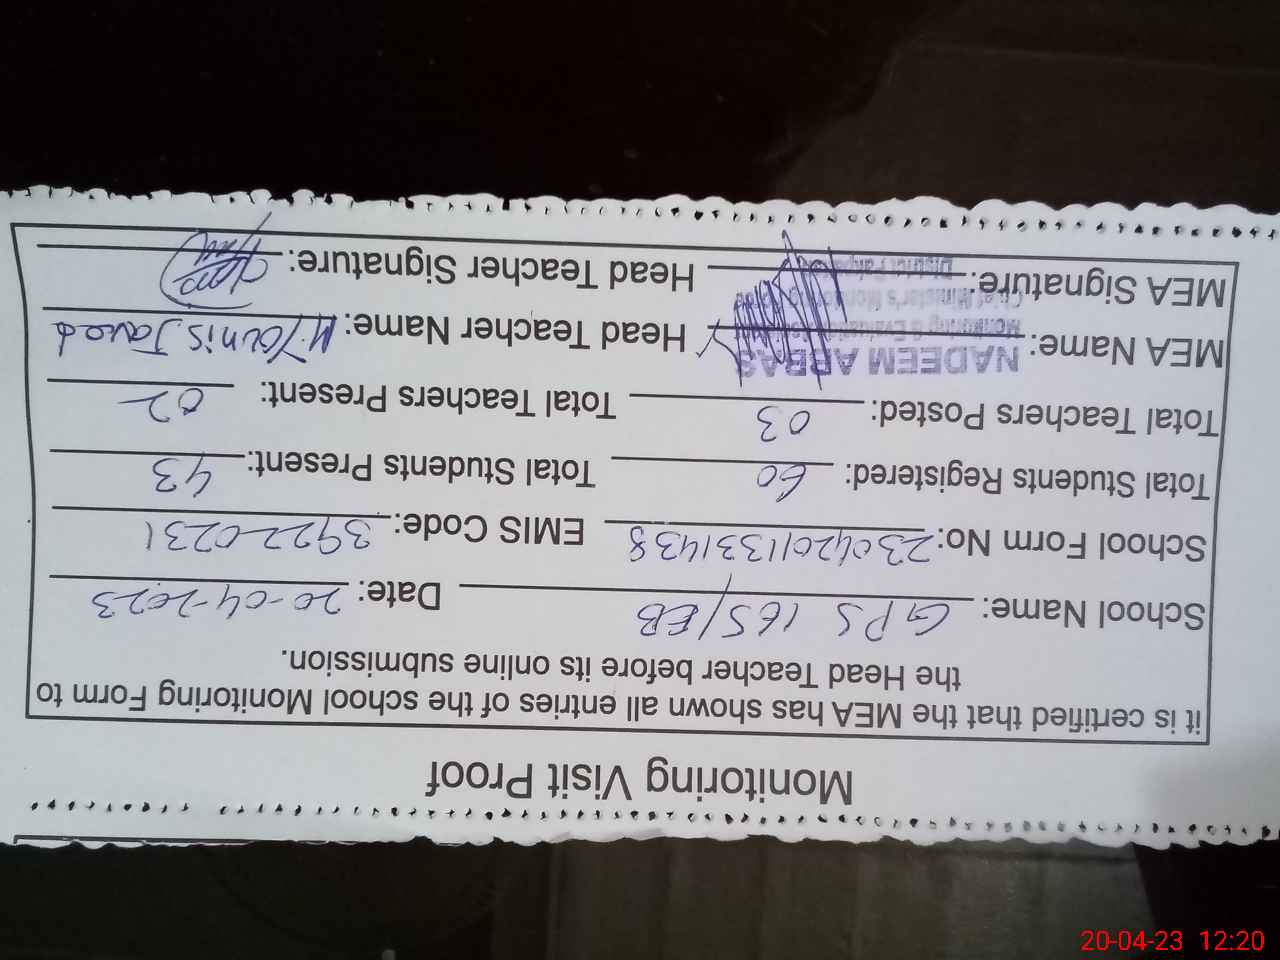 Monitoring Visit Proof
it is certified that the MEA has shown all entries of the school Monitoring Form to
the Head Teacher before its online submission.
School Name: GPS 165/EB Date: 20-04-2023
School Form No: 230420113331438 EMIS Code: 39220231
Total Students Registered: 60 Total Students Present: 43
Total Teachers Posted: 03 Total Teachers Present: 02
MEA Name: NADEEM ABBAS Head Teacher Name: M. Younis Javed
Monitoring & Evaluation
Chief Minister's Monitoring
MEA Signature: District Pakpattan Head Teacher Signature:
20-04-23 12:20